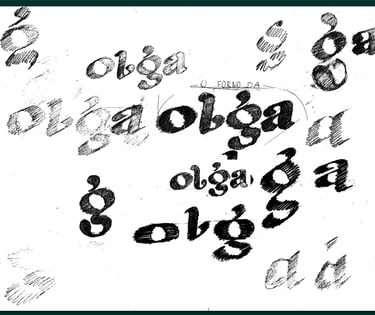 g
g
g a
olga
O FORNO DA
olga
olga
a
olga
g
g a
olga
a a